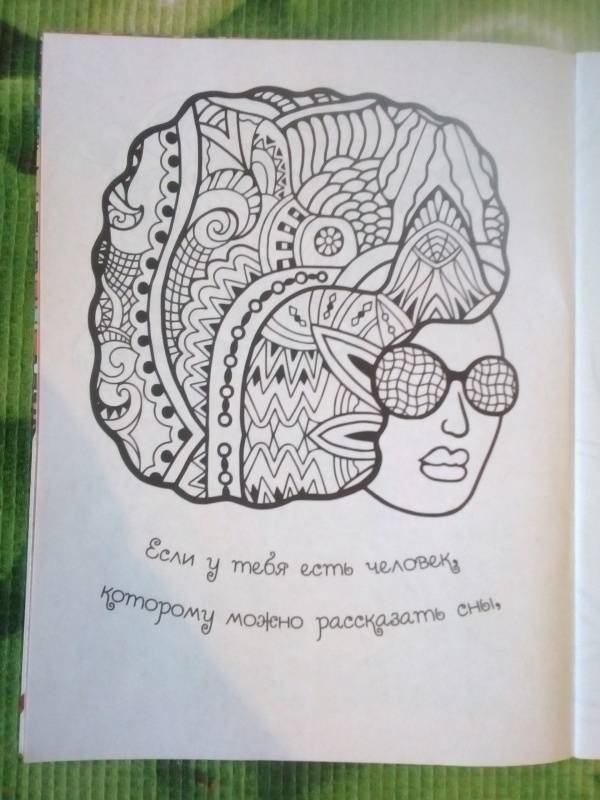 Если у тебя есть человек,
которому можно рассказать сны,